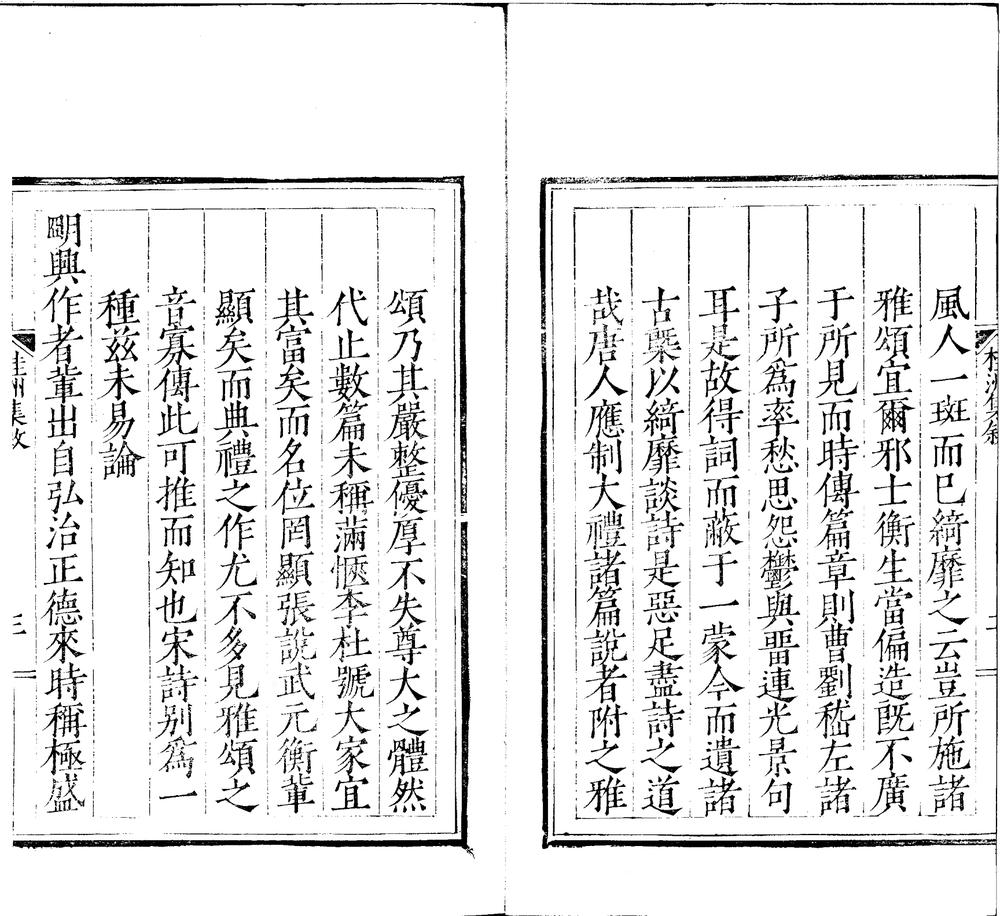 風人一斑而已綺靡之云豈所施諸
雅頌宜爾邪士衡生當偏造既不廣
于所見而時傳篇章則曹劉嵇左諸
子所爲率愁思怨鬱與畱連光景句
耳是故得詞而蔽于一蒙今而遺諸
古槩以綺靡談詩是惡足盡詩之道
哉唐人應制大禮諸篇說者附之雅
頌乃其嚴整優厚不失尊大之體然
代止數篇未稱滿愜李杜號大家宜
其富矣而名位罔顯張說武元衡輩
顯矣而典禮之作尤不多見雅頌之
音寡傳此可推而知也宋詩别爲一
種兹未易論
明興作者輩出自弘治正德來時稱極盛
桂洲集敘
三